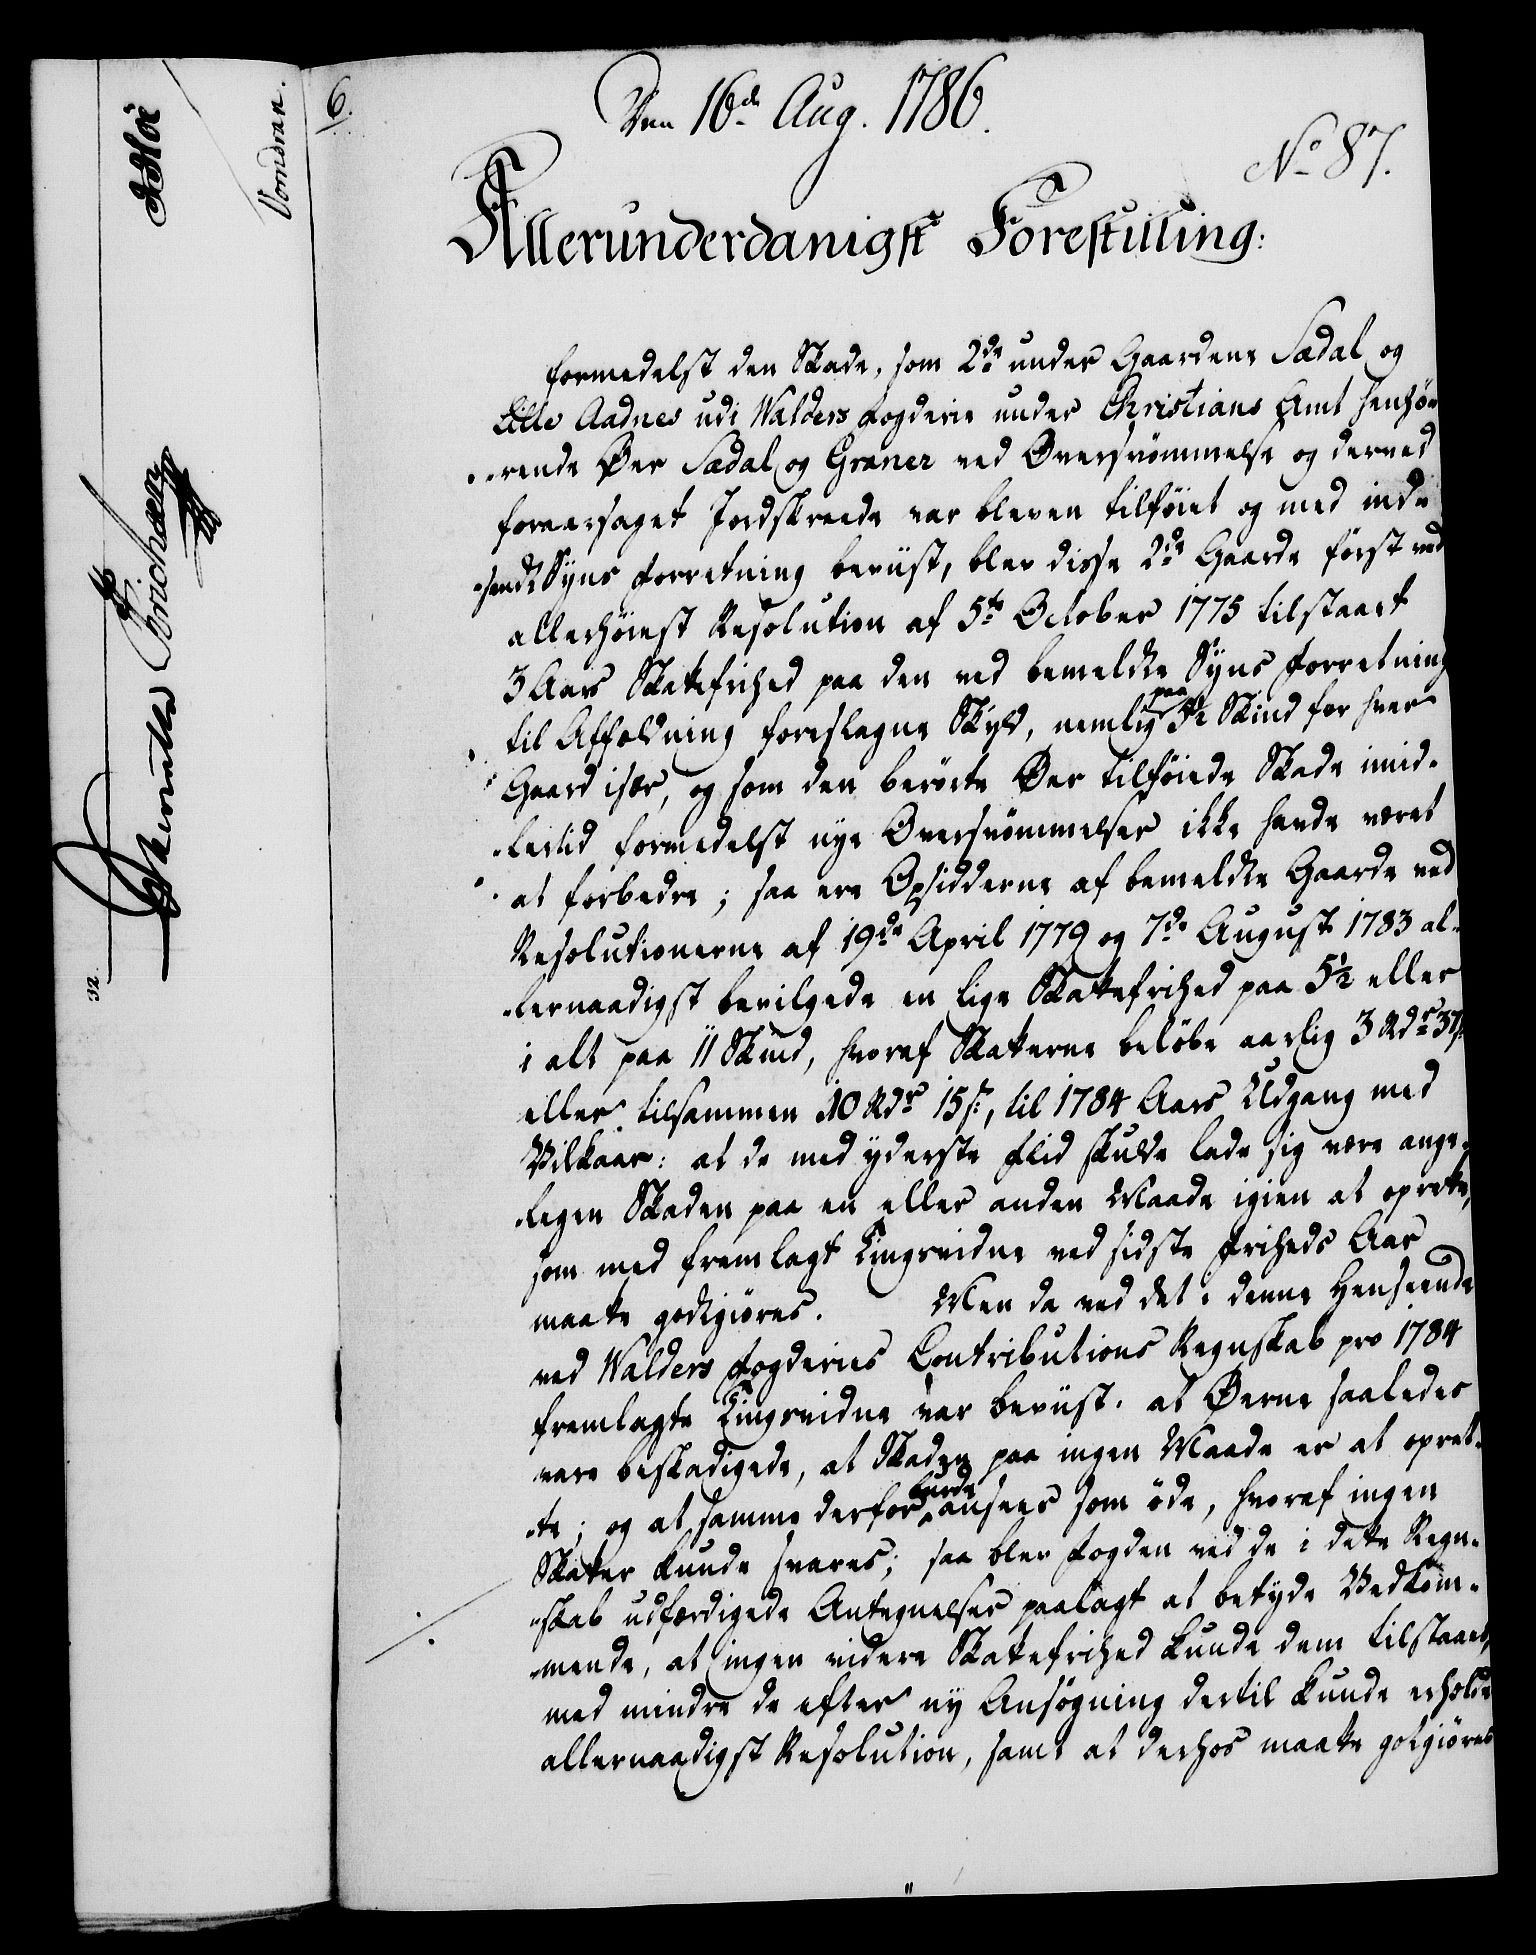 6.
Den 16de Aug. 1786.
No 87.
Allerunderdanigst Forestilling:
Formedelst den Skade, som 2de under Gaardene Sædal og
Lille Aadnes udi Walders Fogderie under Christians Amt henhö-
rende Öer Sædal og Graner ved Oversvömmelse og derved
foraarsaget Jordskreede var bleven tilföiet og med ind-
sendt Syns Forretning beviist, blev disse 2de Gaarde först ved
allerhöiest Resolution af 5te October 1775 tilstaaet
3 Aars Skattefrihed paa den ved bemeldte Syns Forretning
til Affældning foreslagne Skyld, nemlig paa 5½ Skind for hver
Gaard især, og som den berörte Öer tilföiede Skade imid-
lertid formedelst nye Oversvömmelser ikke havde været
at forbedre; saa ere Opsidderne af bemeldte Gaarde ved
Resolutionerne af 19de April 1779 og 7de August 1783 al-
lernaadigst bevilgede en lige Skattefrihed paa 5½ eller
i alt paa 11 Skind, hvoraf Skatterne belöbe aarlig 3 Rdr 37 s:
eller tilsammen 10 Rdr 15 s:, til 1784 Aars Udgang med
Vilkaar: at de med yderste Flid skulde lade sig være ange-
legen Skaden paa en eller anden Maade igien at oprette,
som med fremlagt Tingsvidne ved sidste Friheds Aar
maatte godtgiöres. Men da ved det i denne Henseende
ved Walders Fogderies Contributions Regnskab pro 1784
fremlagte Tingsvidne var beviist. at Öerne saaledes
vare beskadigede, at Skaden paa ingen Maade er at opret-
te; og at samme derfor burde ansees som öde, hvoraf ingen
Skatter kunde svares; saa blev Fogden ved de i dette Regn-
skab udfærdigede Antegnelser paalagt at betyde Vedkom-
mende, at ingen videre Skattefrihed kunde dem tilstaaes,
med mindre de efter ny Ansögning dertil kunde erholde
allernaadigst Resolution, samt at derhos maatte gotgiöres
Vondran.
Erichsen
32.